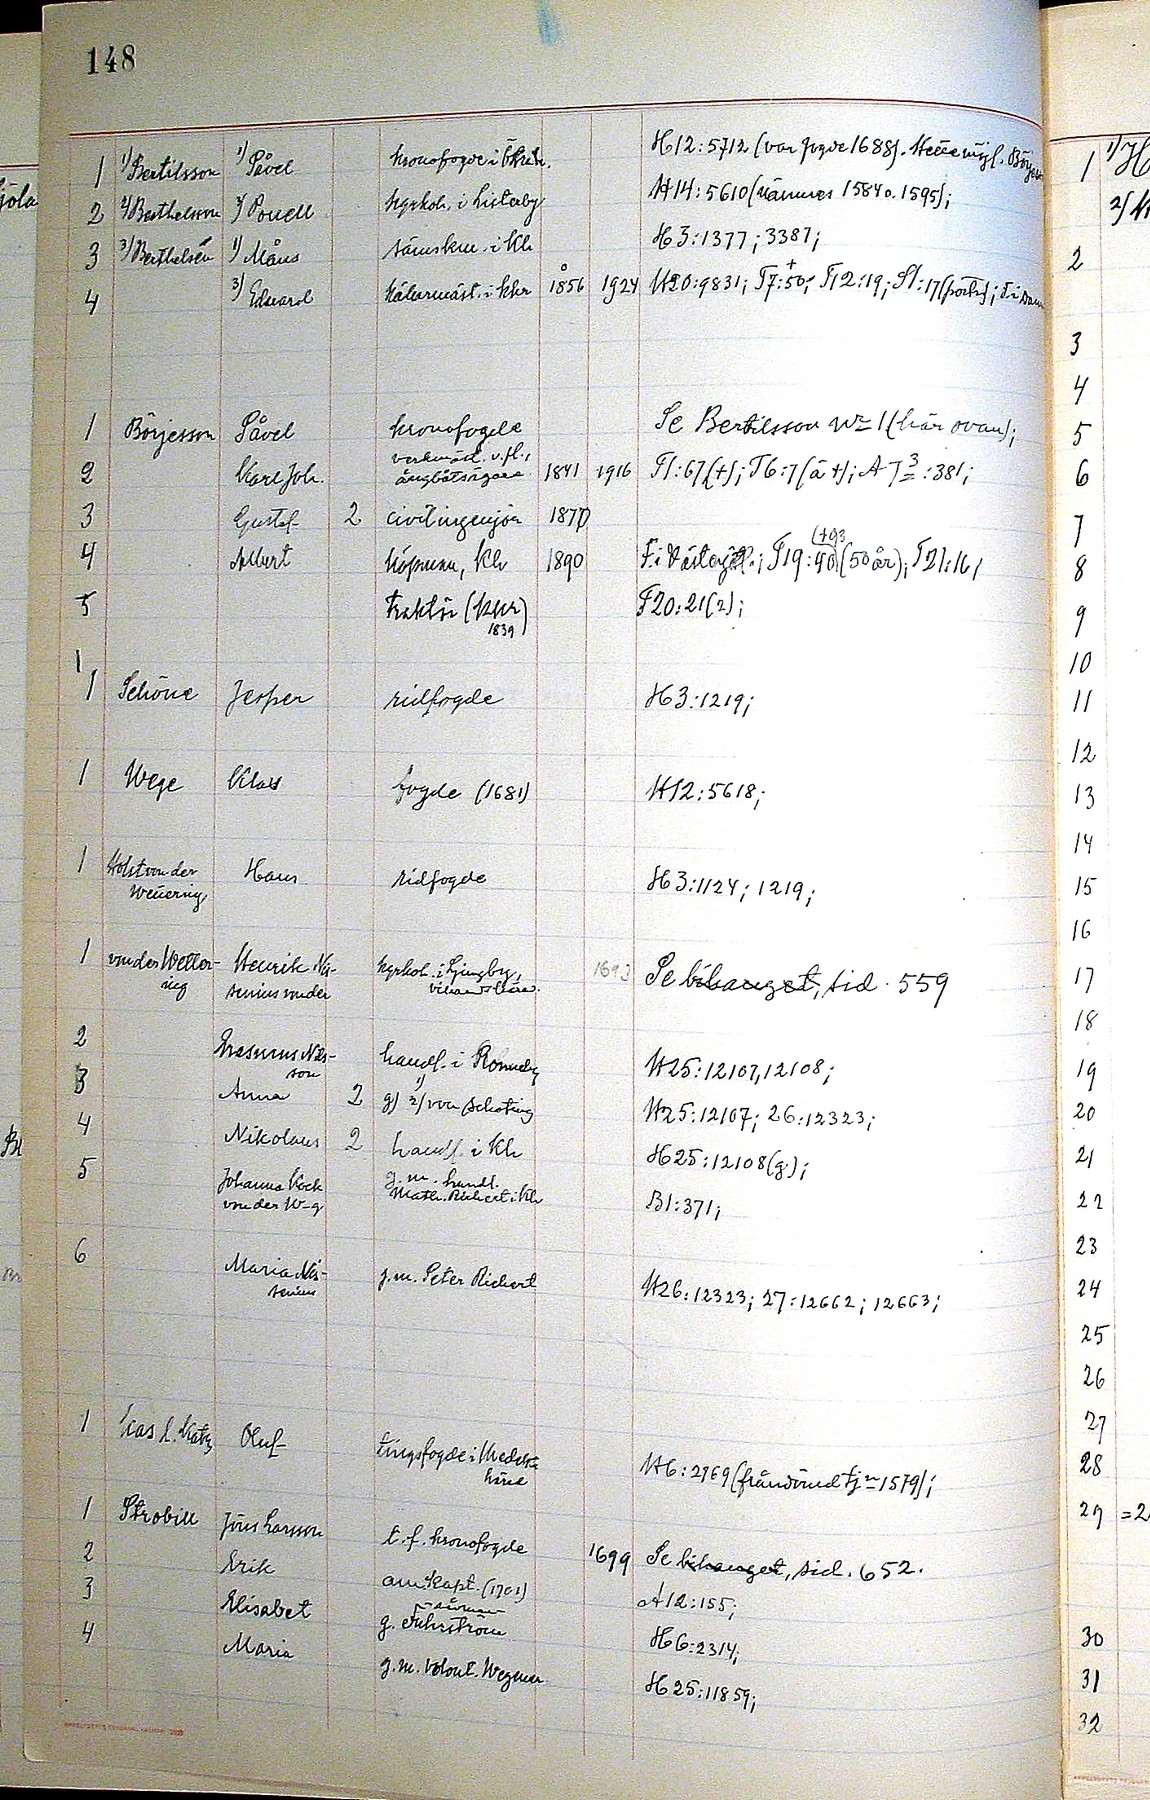 148
1 1) Bertilsson 1) Påvel kronofogde i H12:5712 (var fogde 1688).
2 2) Berthelsson 2) Pouell kyrkoh. i Listerby H14:5610 (nämnes 1584 o. 1595);
3 3) Berthelsén 1) Måns i Kh H3:1377; 3387;
4 3) Eduard källarmäst. i Khr 1856 1924 H20:9831; T7:50; T12:19; S1:17
1 Börjesson Påvel kronofogde Se Bertilsson No 1 (här ovan);
verkmäst. o. fl.,
2 Karl Joh. ångbåtsägare 1841 1916 T1:67 (+); T6:7 (å +); A 7 3:381;
3 Gustaf 2 civilingenjör 1877
(+93
4 Albert köpman, Kh 1890 F. i T19:40 (50 år); T21:16;
5 traktör (Khr) T20:21 (2);
1839
1
1 Schöne Jesper ridfogde H3:1219;
1 Wege Klas fogde (1681) H12:5618;
1 Holst von der Hans ridfogde H3:1124; 1219;
Weuering
1 von der Wetter- Henrik Ni- kyrkoh. i Ljungby, 1693 Se bihanget, sid. 559
ing senius vonder
2 Erasmus Nils- handl. i Ronneby H25:12107, 12108;
son
3 Anna 2 g) 1) 2) von Schoting H25:12107; 26:12323;
4 Nikolaus 2 handl. i Kh H25:12108 (g);
5 Johanna Kock g.m. handl. B1:371;
von der W-g Math. Richert i Kh
6 Maria Ni- g.m. Peter Richert H26:12323; 27:12662; 12663;
senius
1 Kas l. Katz Oluf tingsfogde i Medelsta H6:2969 (från 1579);
härad
1 Strobill Jöns Larsson t.f. kronofogde 1699 Se bihanget, sid. 652.
2 Erik am. kapt. (1701) A12:155;
3 Elisabet g. Fuhrström H6:2314;
4 Maria g.m. volont. Wegner H25:11859;
1 1) H
2)
2
3
4
5
6
7
8
9
10
11
12
13
14
15
16
17
18
19
20
21
22
23
24
25
26
27
28
29 =2
30
31
32